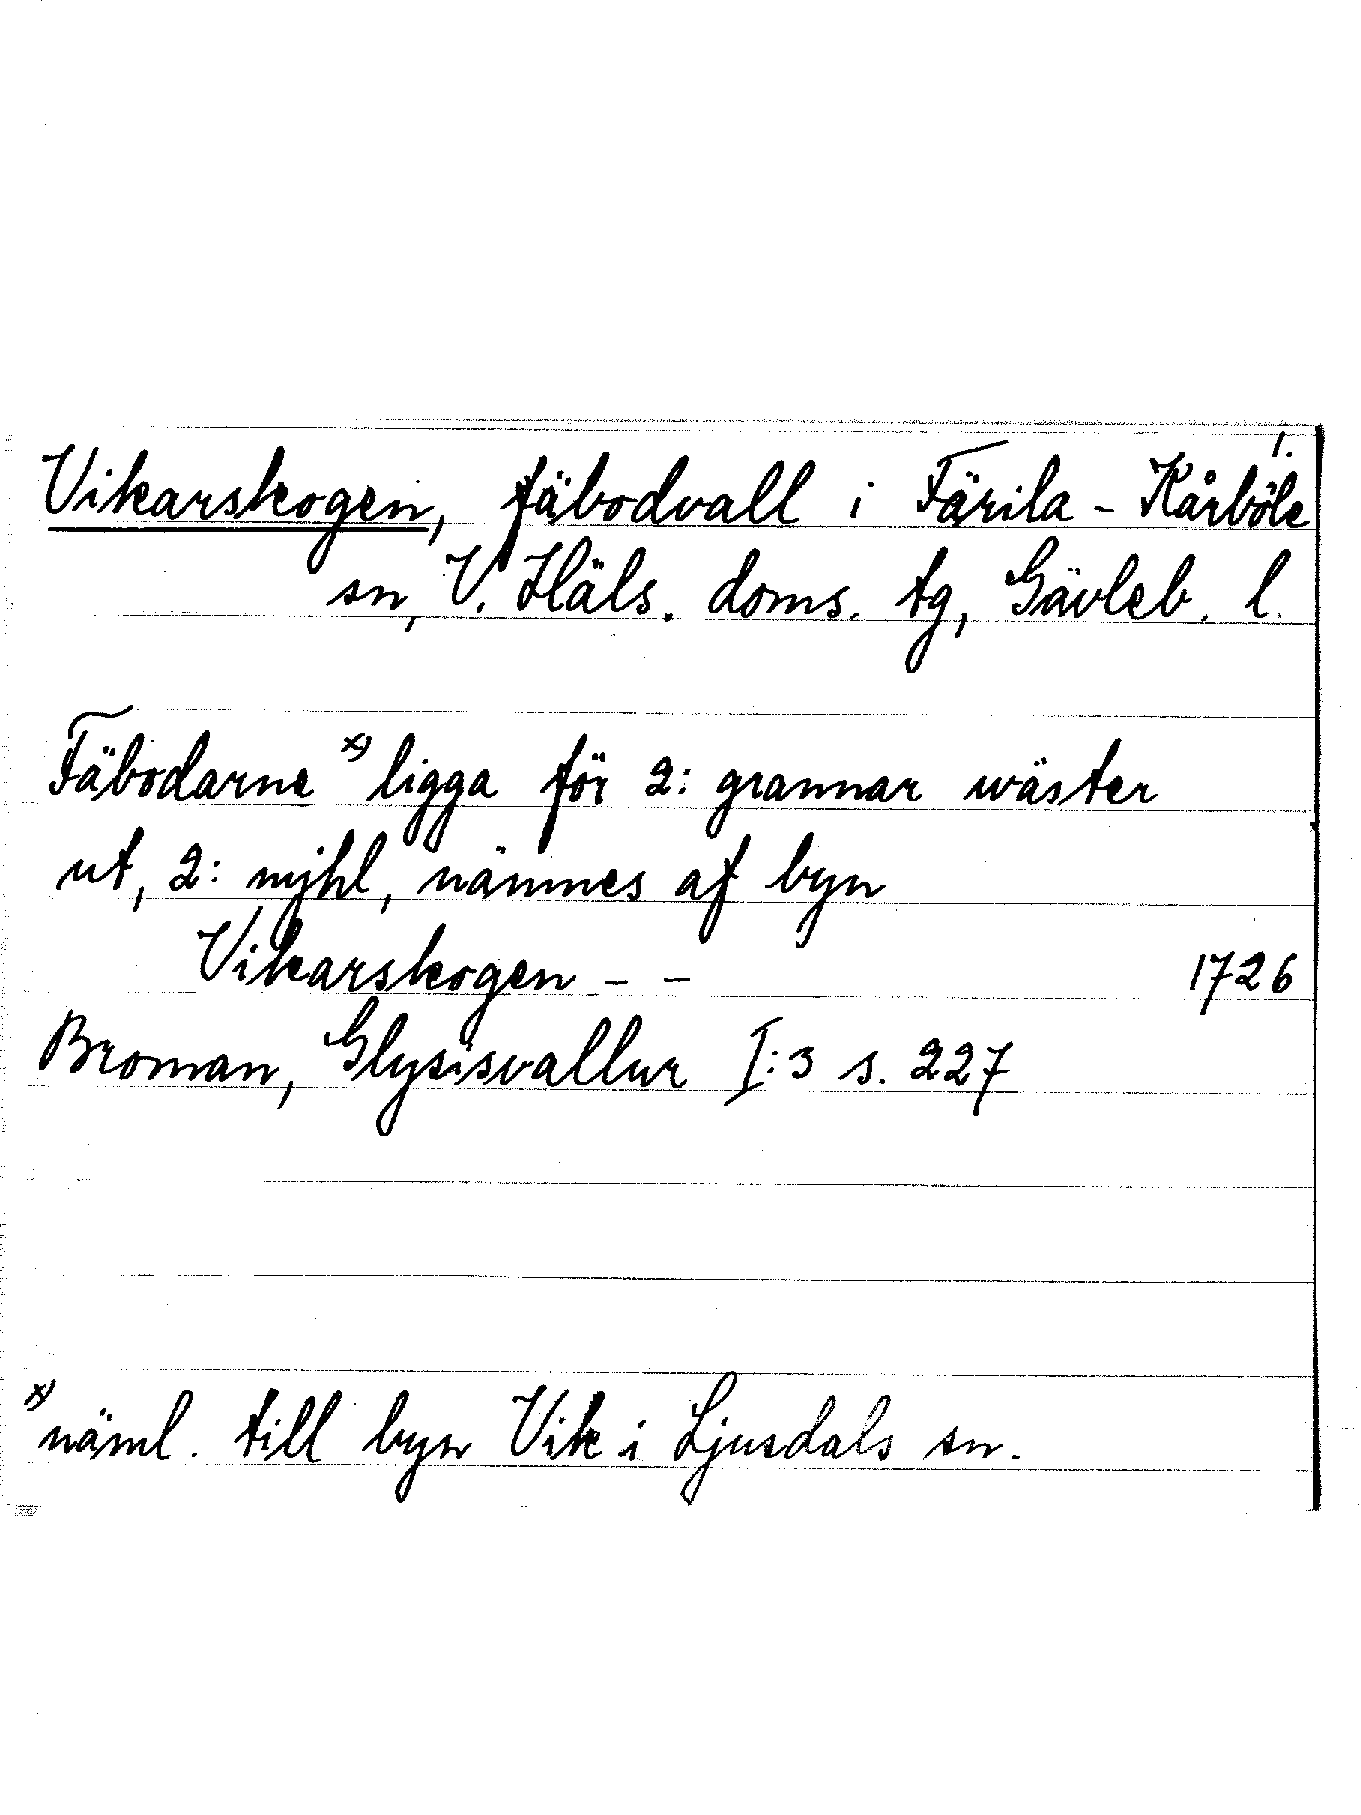 1.
Vikarskogen, fäbodvall i Färila - Kårböle
sn, V. Häls. doms. tg, Gävleb. l.
Fäbodarne x) ligga för 2: grannar wäster
ut, 2: mjhl, nämnes af byn
Vikarskogen - - 1726
Broman, Glysisvallur I:3 s. 227
x) näml. till byn Vik i Ljusdals sn.